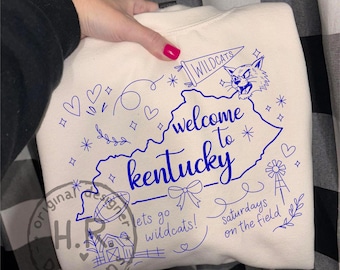 WILDCATS
welcome
to
kentucky
lets go
wildcats!
saturdays
on the field
original designer
H.R.